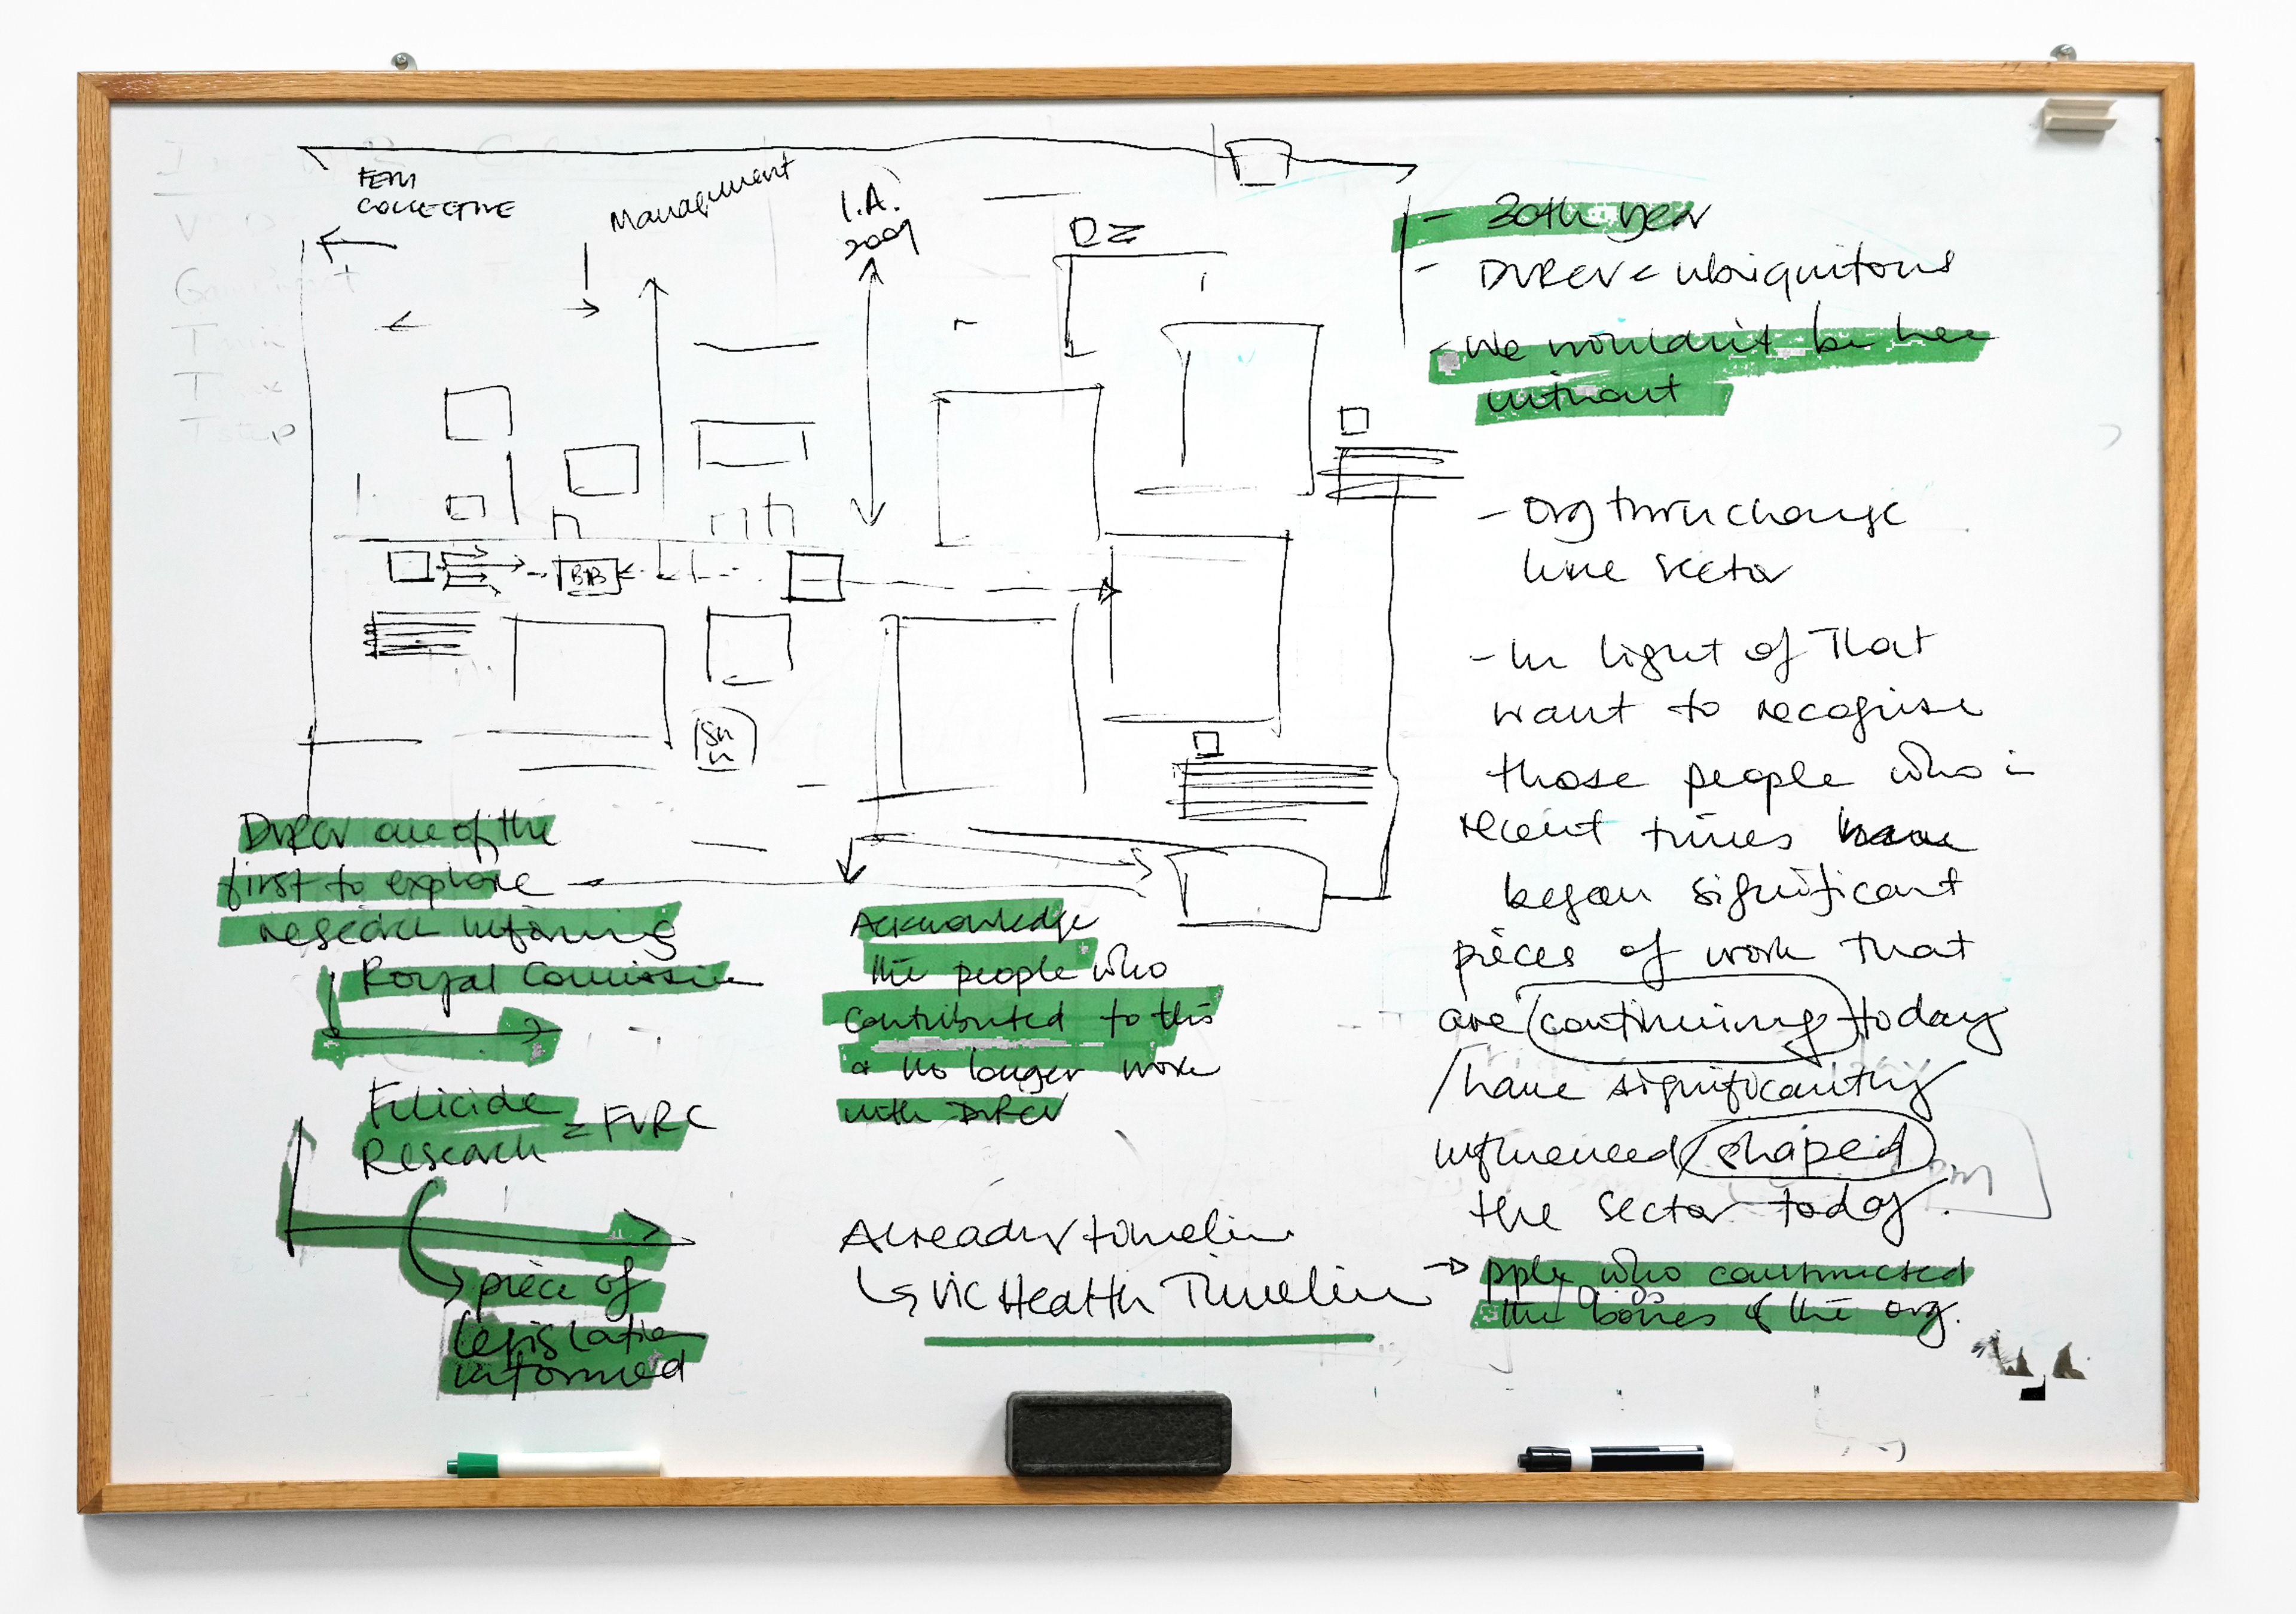 FEM
COLLECTIVE
Management
I.A.
2009
BIB
- 30th year
- DVRCV = ubiquitous
- We wouldn't be here
without
- Org thru change
line sector
- In light of That
want to recognise
those people who in
recent times have
began significant
pieces of work that
are continuing today
/have significantly
influenced/shaped
the sector today.
→ pple who constructed
the bones of the org.
DVRCV one of the
first to explore
research informing
Royal Comission
Filicide
Research = FVRC
piece of
legislation
informed
Acknowledge
the people who
contributed to this
& no longer work
with DVRCV
Already timeline
↳ VIC Health Timeline